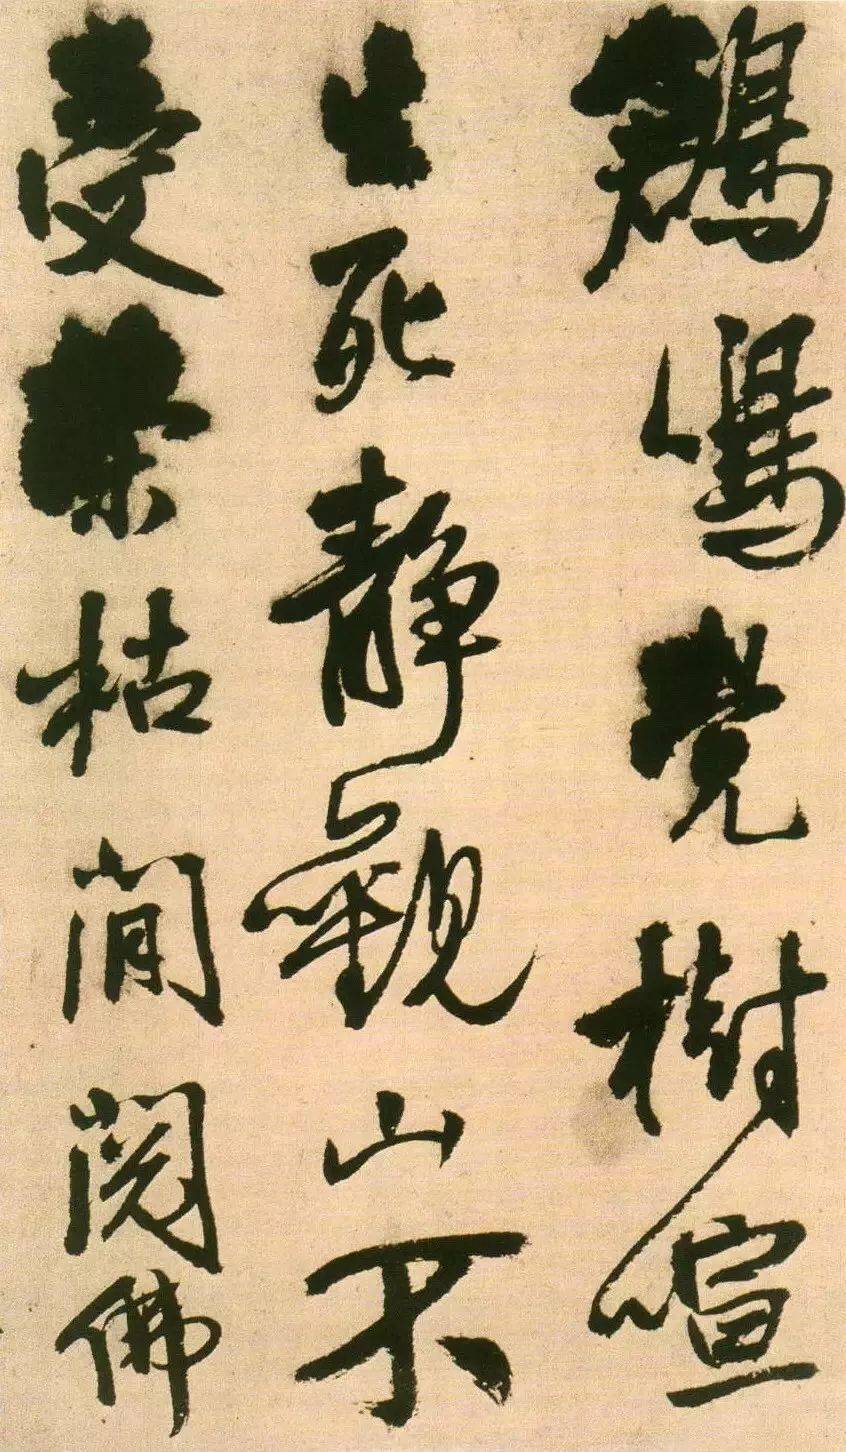 鶴鳴覺樹喧
生死靜觀山不
受榮枯閒閱佛